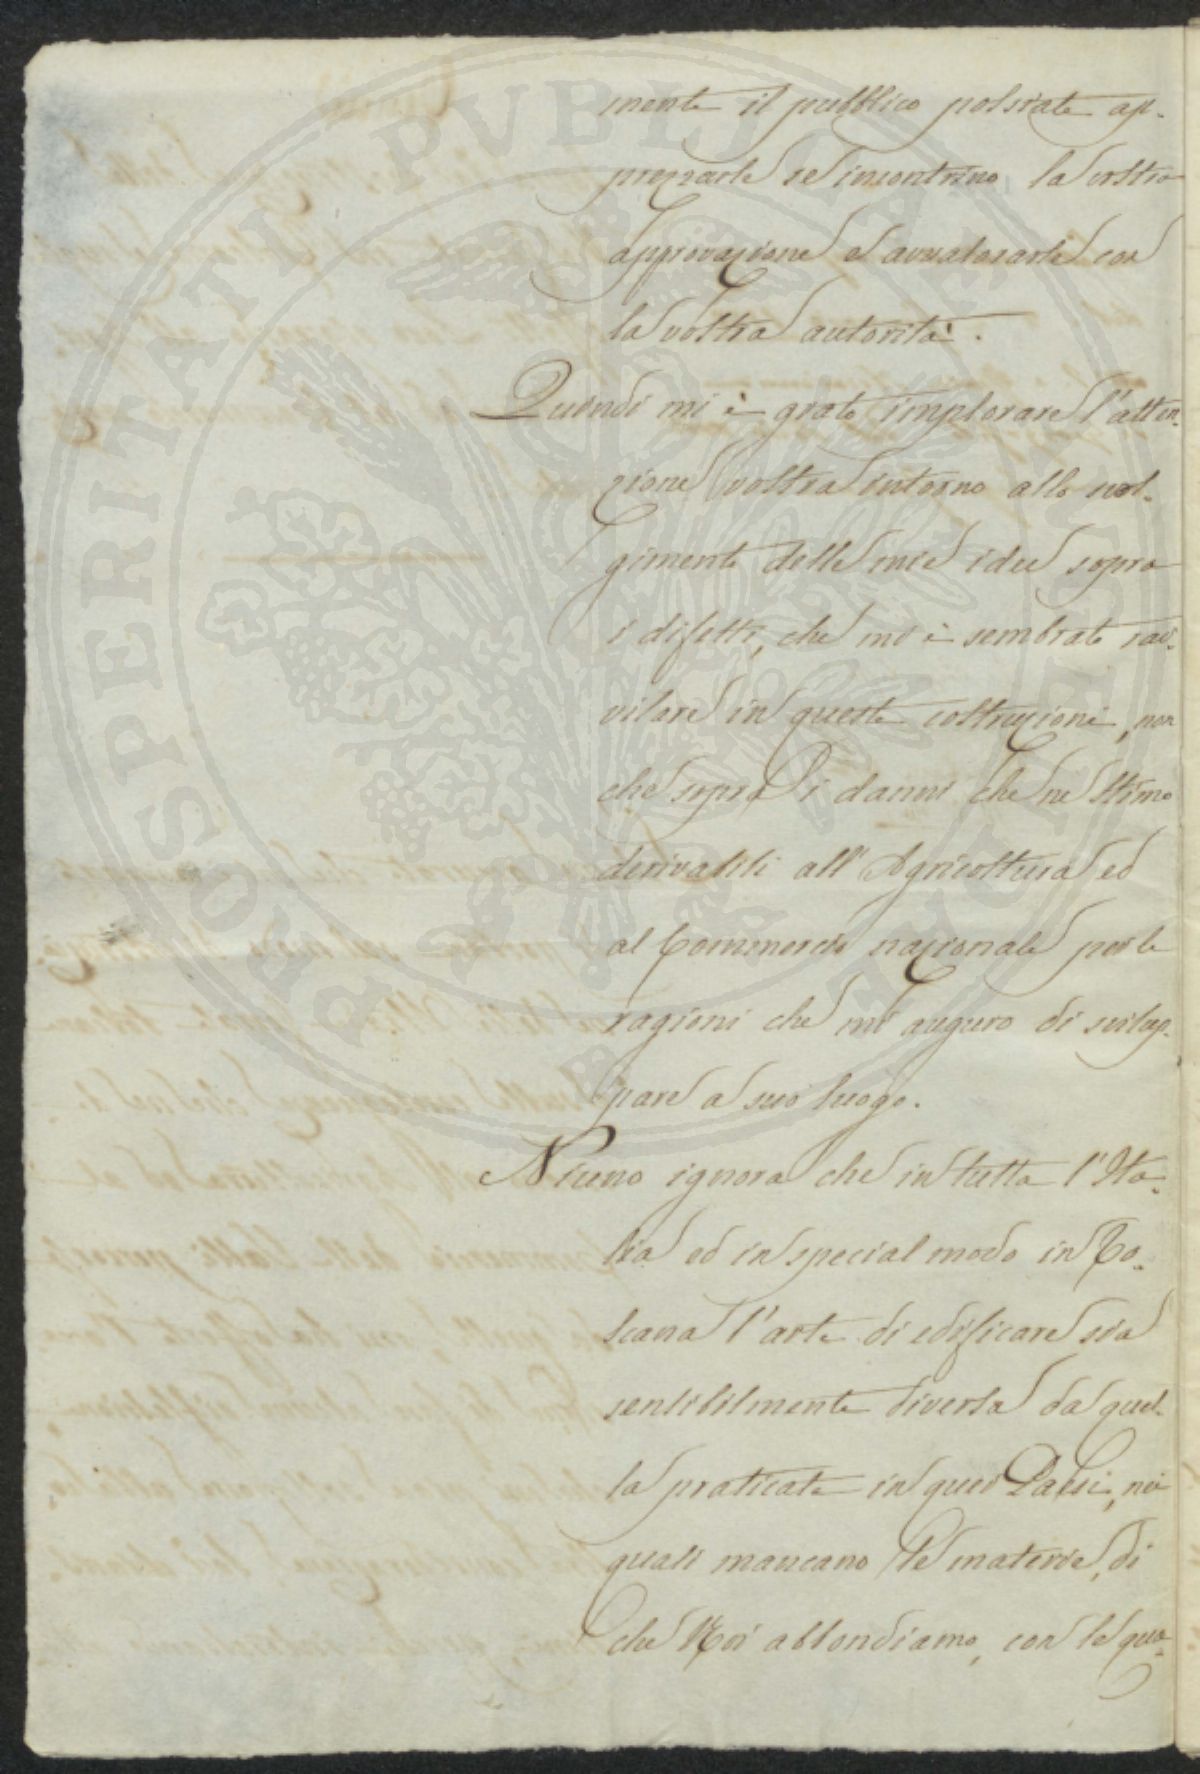 mente il pubblico possiate ap-
prezzarle se incontrino la vostra
approvazione e avvalorarle con
la vostra autorità.
Quindi mi è grato implorare l'atten-
zione vostra intorno allo svol-
gimento delle mie idee sopra
i difetti, che mi è sembrato rav-
visare in queste costruzioni, non
che sopra i danni che ne stimo
derivabili all'Agricoltura ed
al Commercio nazionale per le
ragioni che mi auguro di svilup-
pare a suo luogo.
Niuno ignora che in tutta l'Ita-
lia ed in special modo in To-
scana l'arte di edificare sia
sensibilmente diversa da quel-
la praticata in quei Paesi, nei
quali mancano le materie, di
che Noi abbondiamo, con le qua-
PROSPERITATI PVBLICAE AVGENDAE